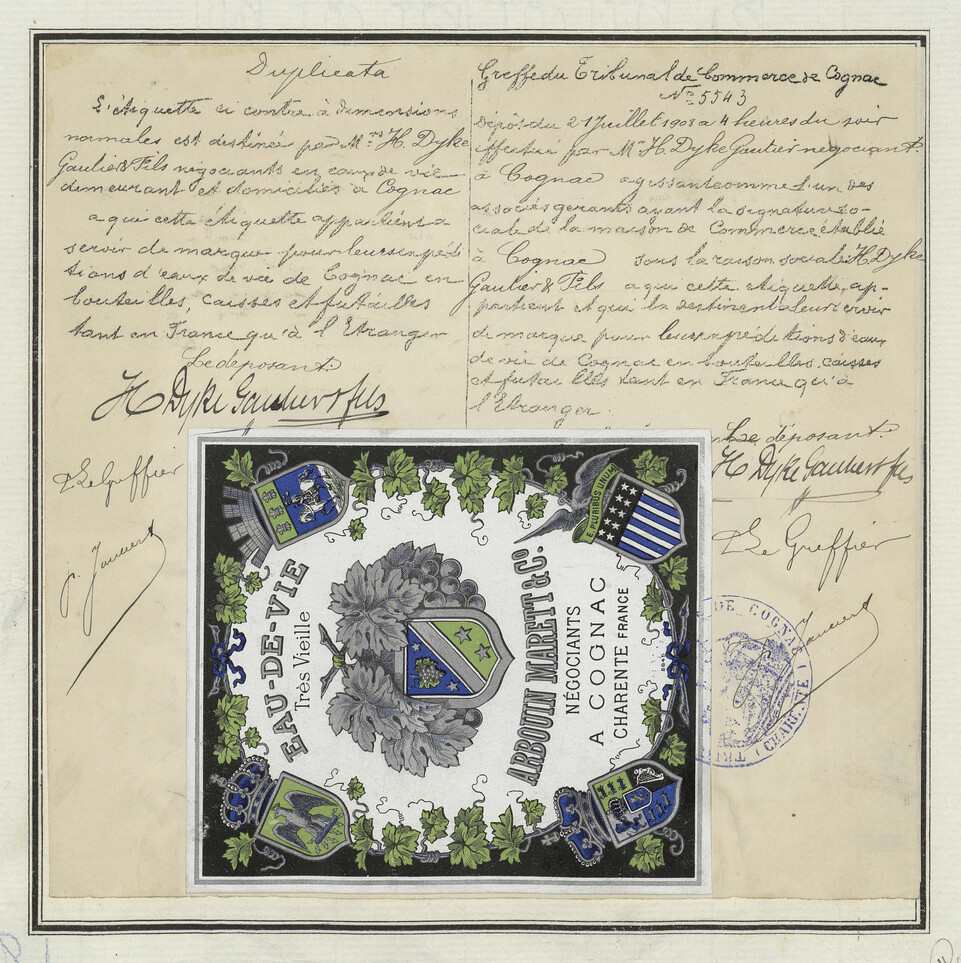 Duplicata
L'étiquette ci contre à dimensions
normales est destinée par Mrs H. Dyke
Gautier & Fils négociants en eaux de vie
demeurant et domiciliés à Cognac
a qui cette étiquette appartient a
servir de marque pour leurs expédi
tions d'eaux de vie de Cognac en
bouteilles, caisses et futailles
tant en France qu'à l'Etranger
Le déposant
H Dyke Gautier & fils
Le Greffier
Greffe du Tribunal de Commerce de Cognac
No 5543
Dépôt du 2 Juillet 1908 a 4 heures du soir
effectué par Mr H. Dyke Gautier négociant
à Cognac agissant comme l'un des
associés gérants ayant la signature so-
ciale de la maison de Commerce établie
à Cognac sous la raison sociale H. Dyke
Gautier & Fils a qui cette étiquette ap-
partient et qui la destinent a leur servir
de marque pour leurs expéditions d'eaux
de vie de Cognac en bouteilles, caisses
et futailles tant en France qu'à
l'Etranger.
Le déposant
H Dyke Gautier & fils
Le Greffier
EAU-DE-VIE
Très Vieille
ARBOUIN MARETT & Co.
NÉGOCIANTS
A COGNAC
CHARENTE FRANCE
E PLURIBUS UNUM
DE COGNAC
(CHARENTE)